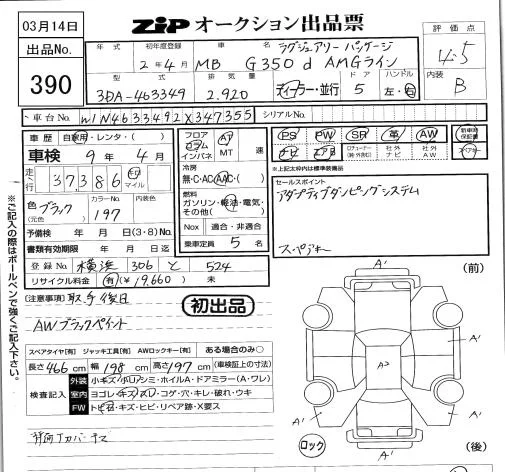 03月14日
ZiP オークション出品票
出品No.
390
年式 初年度登録 車名 ラグジュアリーパッケージ
2年4月 MB G350d AMGライン
型式 排気量 ドア ハンドル
3DA-463349 2.920 ディーラー・並行 5 左・右
評価点
4.5
内装
B
車台No. W1N4633492X347355 シリアルNo.
車歴 自家用・レンタ・( )
車検 9年4月
走行 37386 km マイル
色 ブラック カラーNo. 197 内装色
(元色)
予備検 年 月 日(3・8)
書類有効期限 年 月 日迄
登録No. 横浜 306 と 524
リサイクル料金 有(¥19,660) 未
フロア コラム インパネ AT MT 速
冷房 無・C・AC・AAC・( )
燃料 ガソリン・軽油・電気・その他( )
Nox 適合・非適合
乗車定員 5 名
PS PW SR 革 AW 新車時保証書
ナビ 社外ナビ 社外AW
※上記太枠内は標準装備品
セールスポイント
アダプティブダンピングシステム
スペアキー
[注意事項] 取寄後日
初出品
AWブラックペイント
スペアタイヤ[有] ジャッキ工具[有] AWロックキー[有] ある場合のみ○
長さ466cm 幅198cm 高さ197cm (車検証上の寸法)
検査記入
外装 小キズ・小凹・シミ・ホイルA・ドアミラー(A・ワレ)
室内 ヨゴレ・キズ・スレ・コゲ・穴・キレ・破れ・ウキ
FW トビ石・キズ・ヒビ・リペア跡・X要ス
※ご記入の際はボールペンで強くご記入下さい。
(前)
A'
A'
A'
A'
A'
ロック
A'
(後)